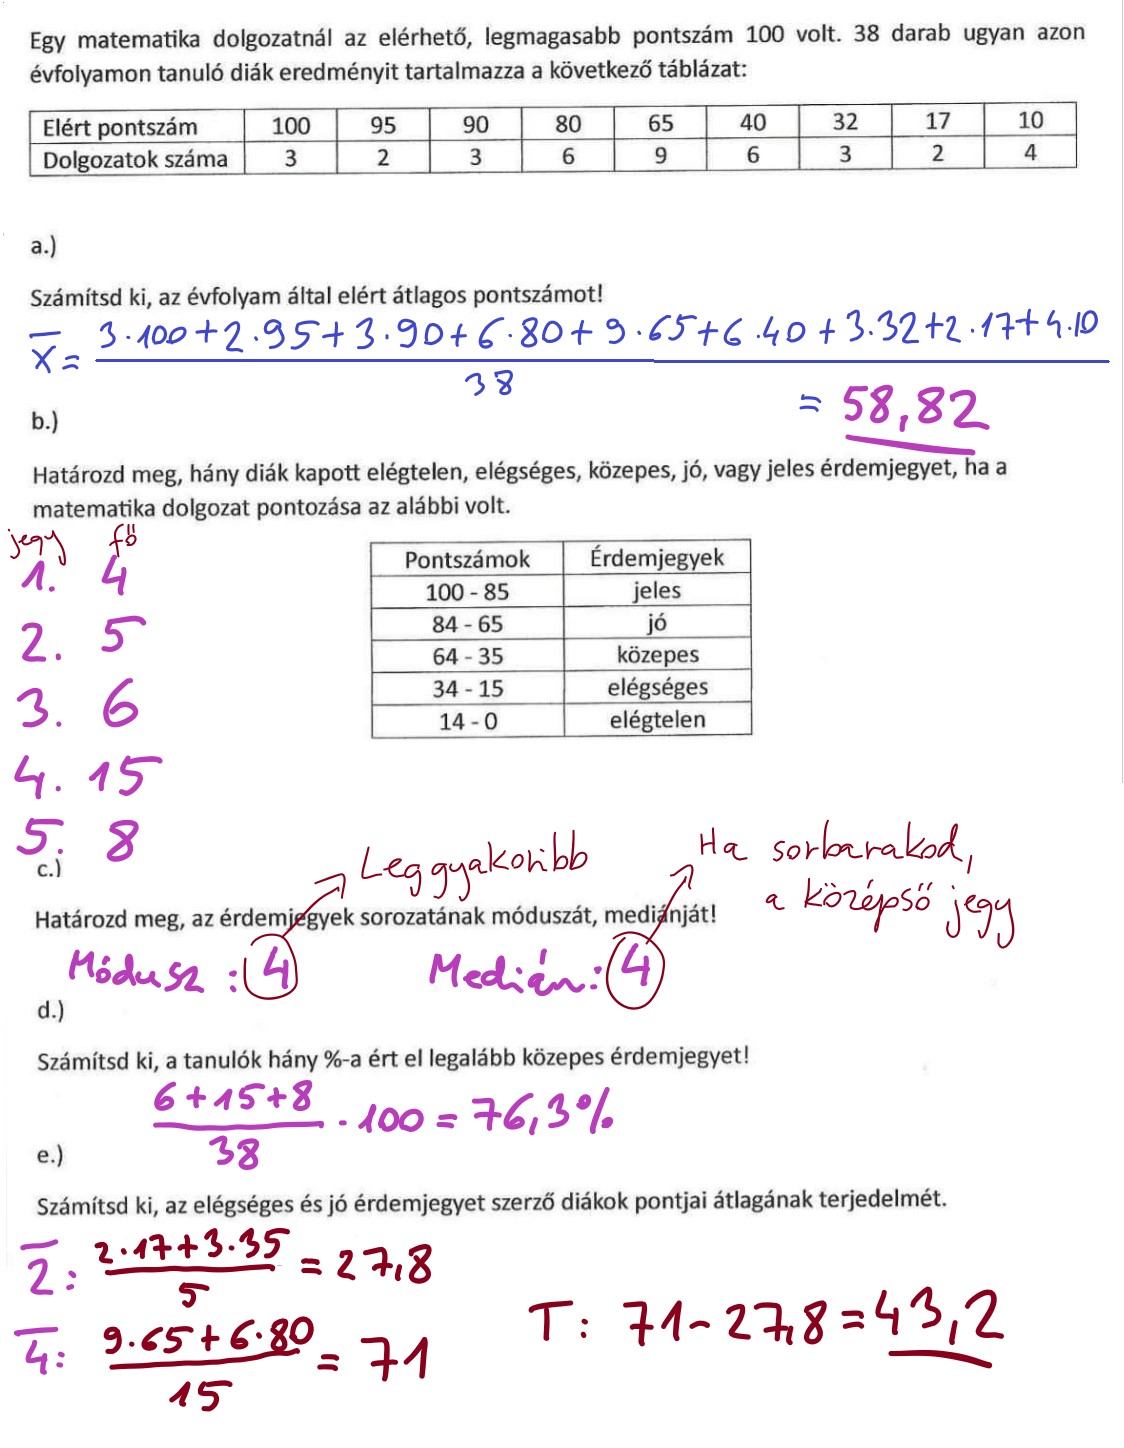 Egy matematika dolgozatnál az elérhető, legmagasabb pontszám 100 volt. 38 darab ugyan azon
évfolyamon tanuló diák eredményit tartalmazza a következő táblázat:
Elért pontszám 100 95 90 80 65 40 32 17 10
Dolgozatok száma 3 2 3 6 9 6 3 2 4
a.)
Számítsd ki, az évfolyam által elért átlagos pontszámot!
x̄ = (3·100+2·95+3·90+6·80+9·65+6·40+3·32+2·17+4·10)/38
= 58,82
b.)
Határozd meg, hány diák kapott elégtelen, elégséges, közepes, jó, vagy jeles érdemjegyet, ha a
matematika dolgozat pontozása az alábbi volt.
jegy fő
1. 4
2. 5
3. 6
4. 15
5. 8
Pontszámok Érdemjegyek
100 - 85 jeles
84 - 65 jó
64 - 35 közepes
34 - 15 elégséges
14 - 0 elégtelen
Leggyakoribb
Ha sorbarakod,
a középső jegy
c.)
Határozd meg, az érdemjegyek sorozatának móduszát, mediánját!
Módusz : 4 Medián: 4
d.)
Számítsd ki, a tanulók hány %-a ért el legalább közepes érdemjegyet!
(6+15+8)/38 · 100 = 76,3%
e.)
Számítsd ki, az elégséges és jó érdemjegyet szerző diákok pontjai átlagának terjedelmét.
2̄: (2·17+3·35)/5 = 27,8
4̄: (9·65+6·80)/15 = 71
T: 71-27,8=43,2